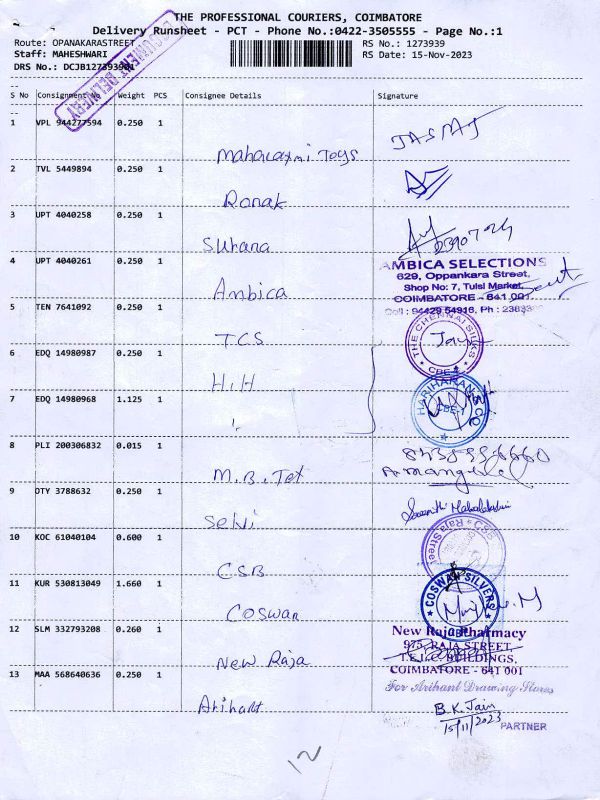 THE PROFESSIONAL COURIERS, COIMBATORE
Delivery Runsheet - PCT - Phone No.:0422-3505555 - Page No.:1
Route: OPANAKARASTREET
RS No.: 1273939
Staff: MAHESHWARI
RS Date: 15-Nov-2023
DRS No.: DCJB127393901
DOCUMENT DELIVERY
S No Consignment No Weight PCS Consignee Details Signature
1 VPL 944277594 0.250 1
Mahalaxmi Toys
2 TVL 5449894 0.250 1
Ronak
3 UPT 4040258 0.250 1
Suhana
4 UPT 4040261 0.250 1
Ambica
AMBICA SELECTIONS
629, Oppankara Street,
Shop No: 7, Tulsi Market,
COIMBATORE - 641 001.
Cell : 94429 54916, Ph :
5 TEN 7641092 0.250 1
TCS
THE CHENNAI SILKS
CBE-1
6 EDQ 14980987 0.250 1
H.H
7 EDQ 14980968 1.125 1
HARIHARAN & CO
CBE-1
8 PLI 200306832 0.015 1
M.B. Jet
9 OTY 3788632 0.250 1
Selvi
10 KOC 61040104 0.600 1
CSB
CSB
Raja Street
11 KUR 530813049 1.660 1
Coswan
COSWAN SILVERS
CBE
12 SLM 332793208 0.260 1
New Raja
New Raja Pharmacy
975, RAJA STREET,
T.E.L.C. BUILDINGS,
COIMBATORE - 641 001
13 MAA 568640636 0.250 1
Arihant
For Arihant Drawing Stores
B.K. Jain
15/11/2023
PARTNER
12